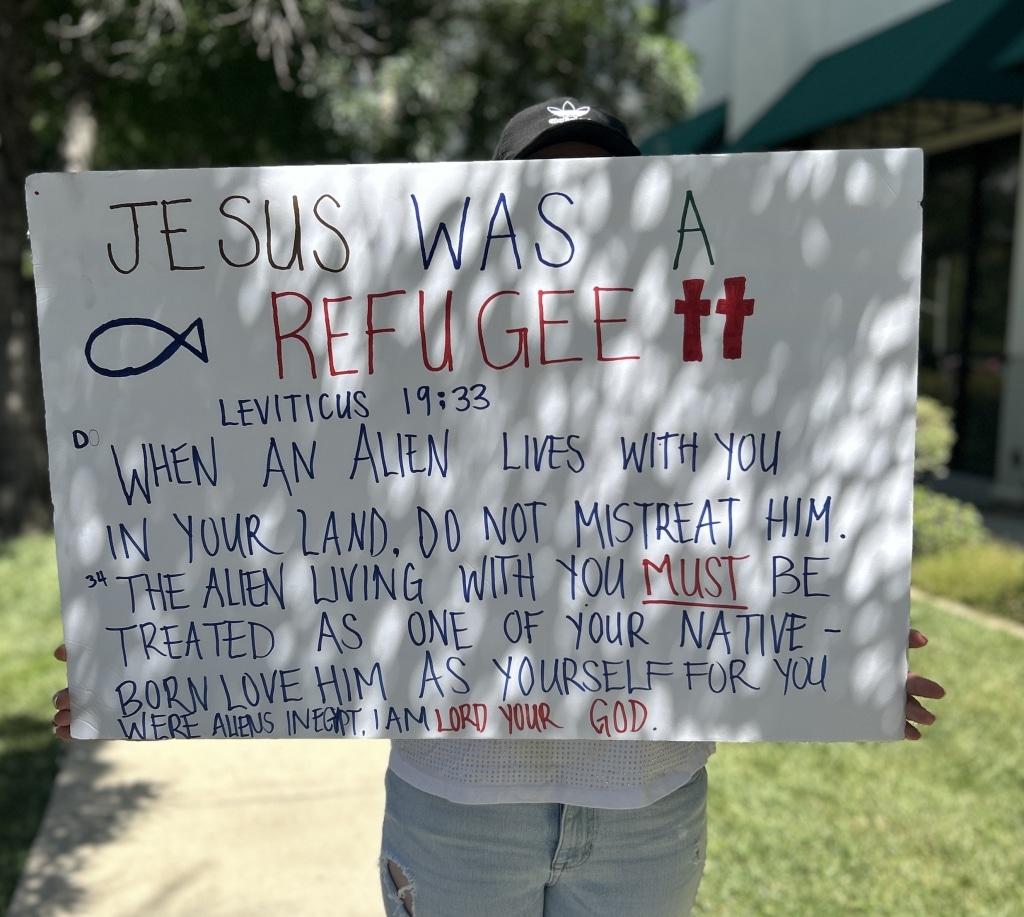 JESUS WAS A
REFUGEE
LEVITICUS 19:33
DO
WHEN AN ALIEN LIVES WITH YOU
IN YOUR LAND, DO NOT MISTREAT HIM.
34 THE ALIEN LIVING WITH YOU MUST BE
TREATED AS ONE OF YOUR NATIVE -
BORN LOVE HIM AS YOURSELF FOR YOU
WERE ALIENS IN EGYPT, I AM LORD YOUR GOD.